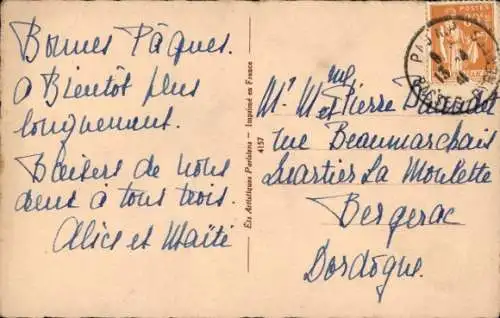 Bonnes Pâques.
A Bientôt plus
longuement.
Baisers de nous
deux à tous trois.
Alice et Maïté
Ets Artistiques Parisiens — Imprimé en France
4157
POSTES
Mr Mme et Pierre
rue Beaumarchais
Quartier La Moulette
Bergerac
Dordogne.